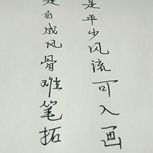 是平少风流可入画
是自成风骨难笔拓